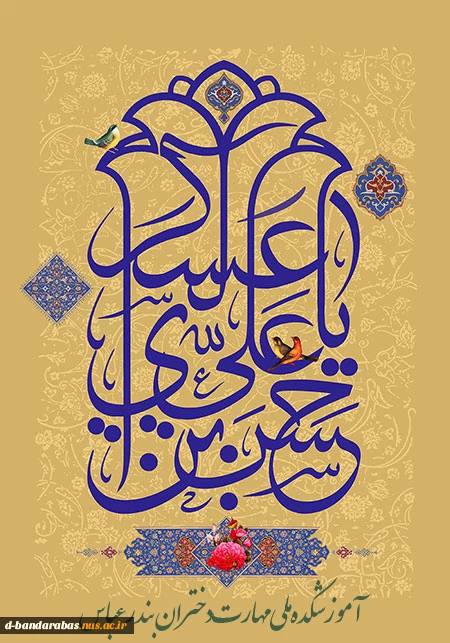 یا حسن بن علی العسکری
آموزشکده ملی مهارت دختران بندرعباس
d-bandarabas.nus.ac.ir